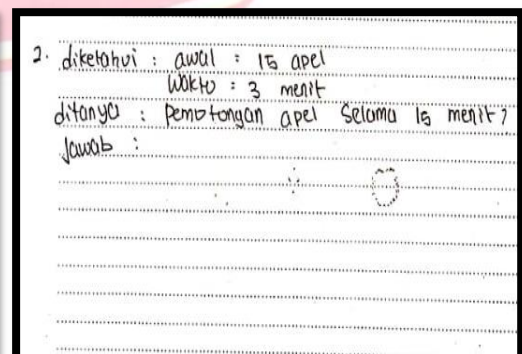 2. diketahui : awal : 15 apel
waktu : 3 menit
ditanya : pemotongan apel selama 15 menit?
Jawab :